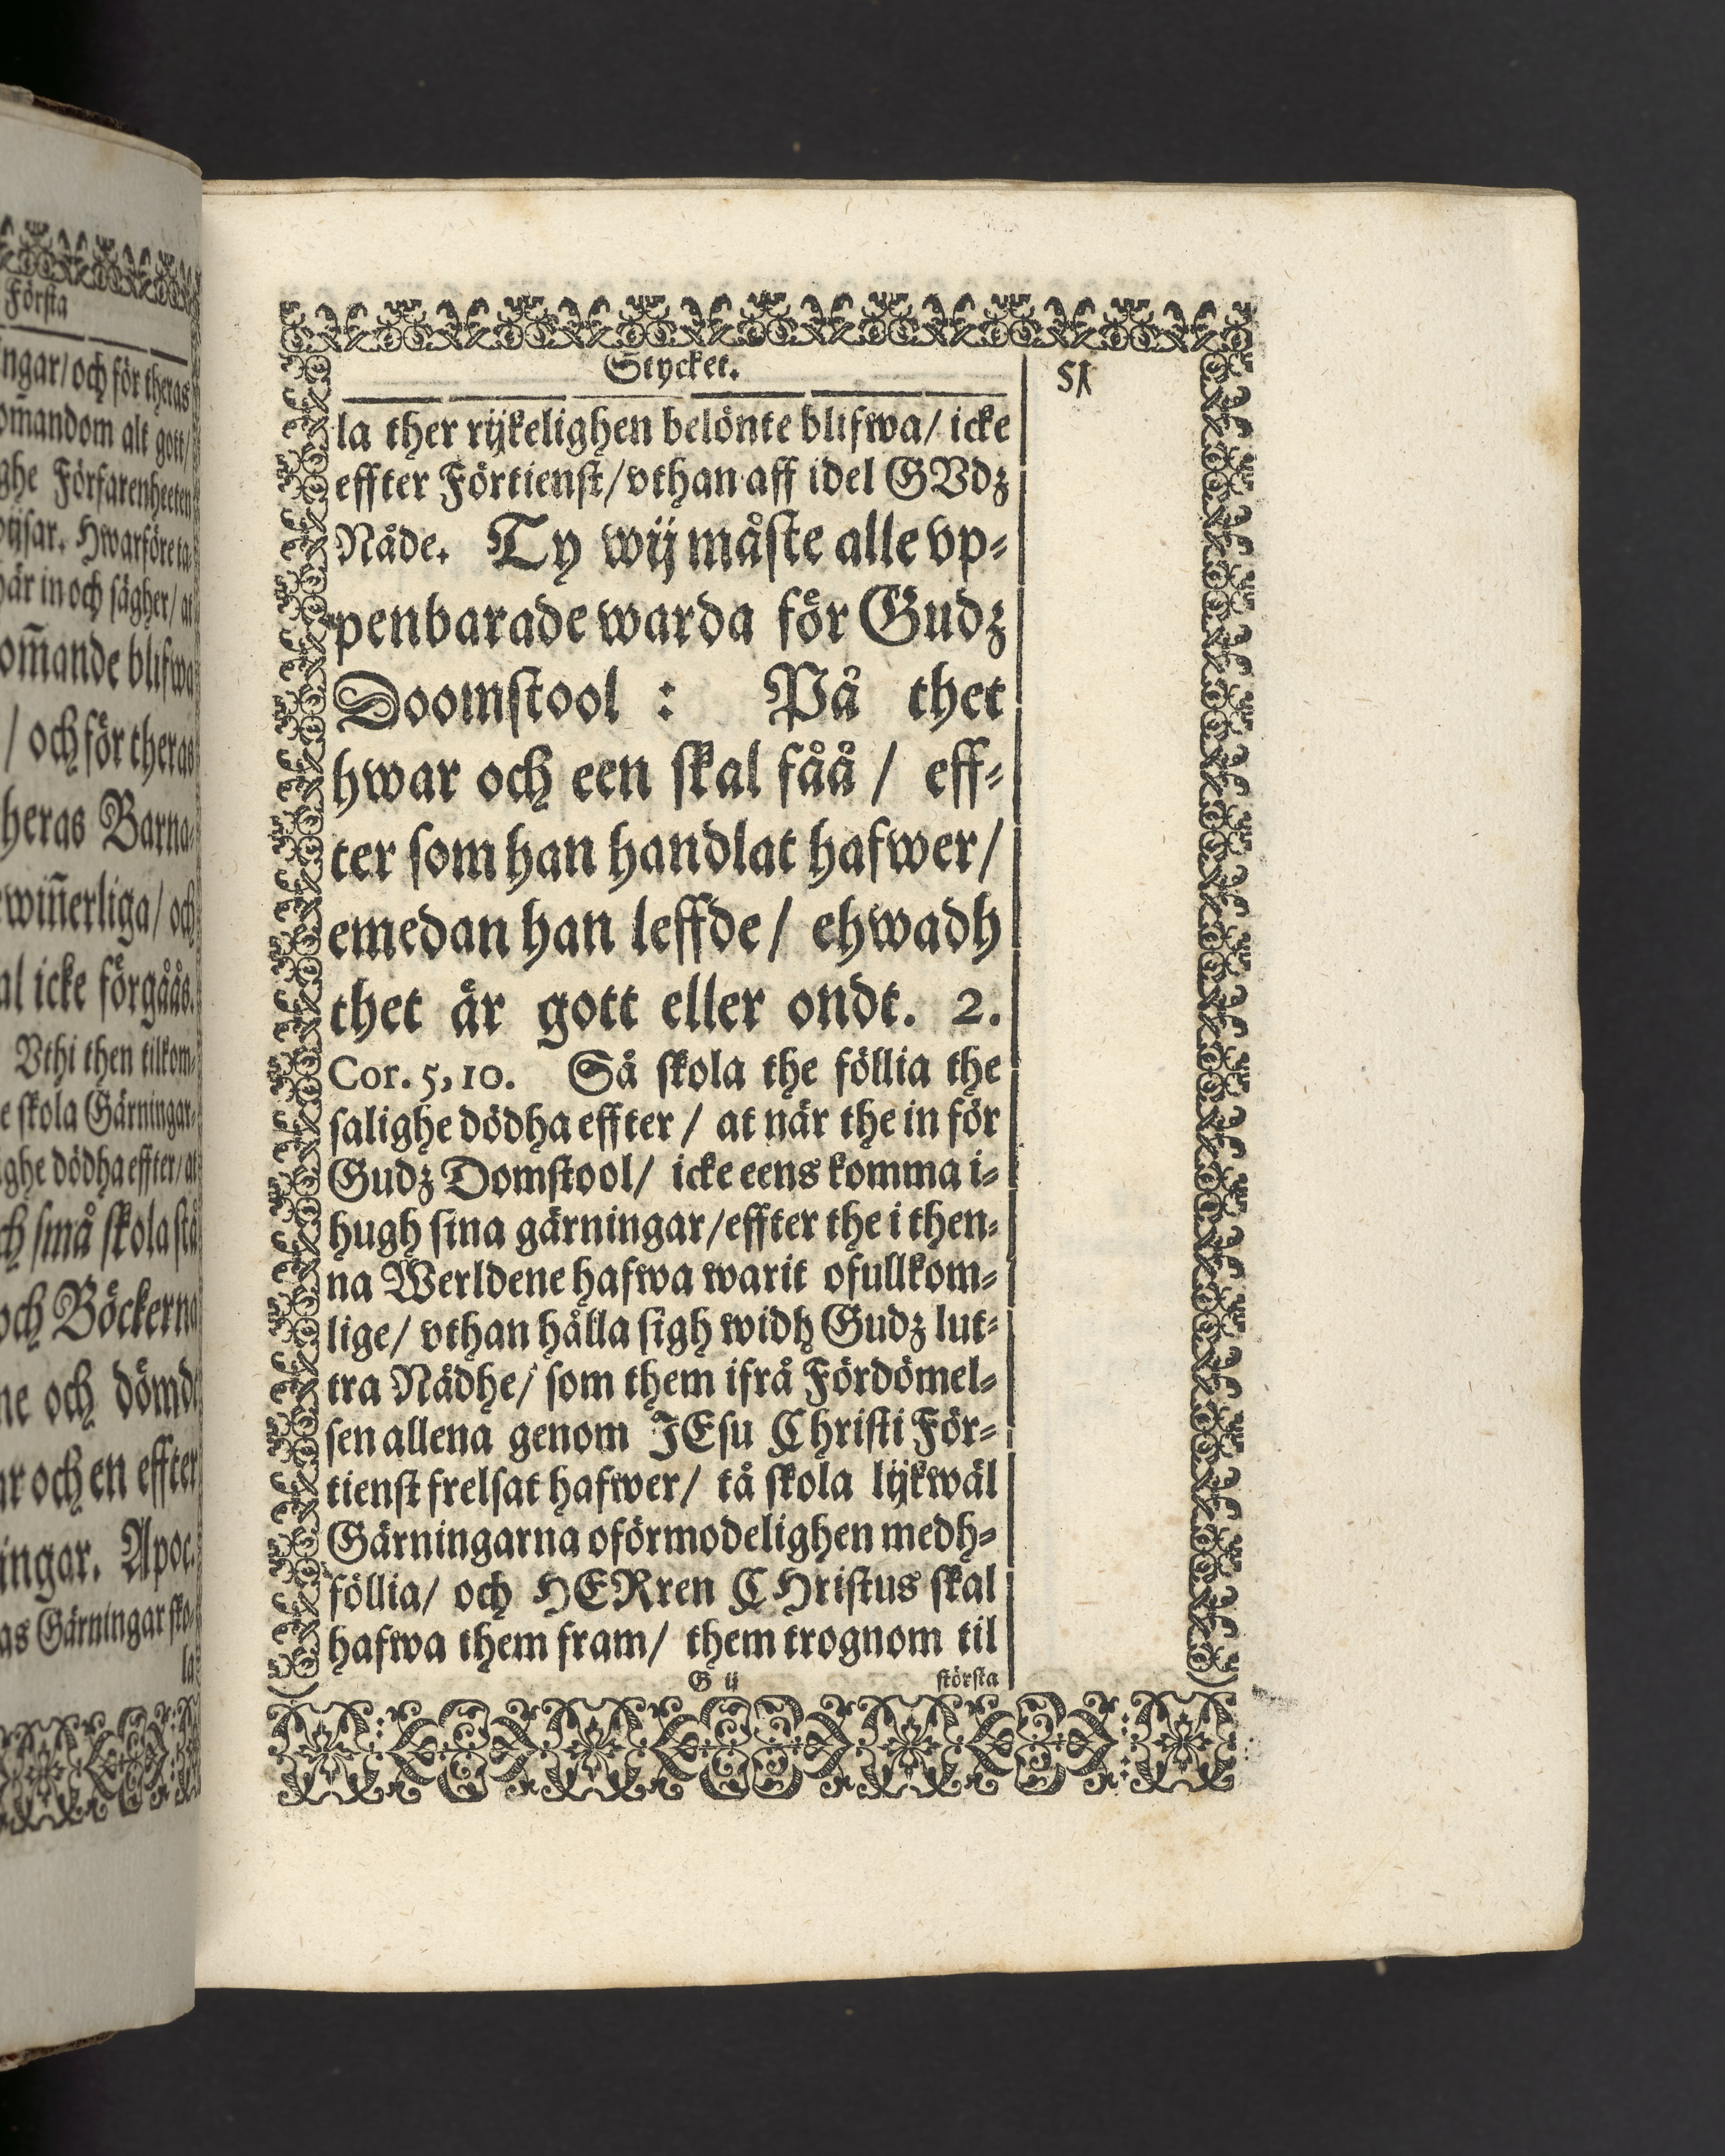 Första
ngar/och för theras
omandom alt gott/
ghe Förfarenheeten
wijsar. Hwarföre ta
här in och sägher/ at
om̃ande blifwa
/ och för theras
heras Barna-
ewiñerliga/ och
al icke förgåås.
Vthi then tilkom-
e skola Gärningar-
ighe dödha effter/ at
ch små skola stå
och Böckerna
ne och dömde
ar och en effter
ingar. Apoc.
as Gärningar sko-
la
Stycket.
51
la ther rijkelighen belönte blifwa/ icke
effter Förtienst/vthan aff idel GVdz
Nåde. Ty wij måste alle vp-
penbarade warda för Gudz
Doomstool : På thet
hwar och een skal fåå / eff-
ter som han handlat hafwer/
emedan han leffde/ ehwadh
thet är gott eller ondt. 2.
Cor. 5, 10. Så skola the föllia the
salighe dödha effter / at när the in för
Gudz Domstool/ icke eens komma i-
hugh sina gärningar/effter the i then-
na Werldene hafwa warit ofullkom-
lige/ vthan hålla sigh widh Gudz lut-
tra Nådhe/ som them ifrå Fördömel-
sen allena genom JEsu Christi För-
tienst frelsat hafwer/ tå skola lijkwäl
Gärningarna oförmodelighen medh-
föllia/ och HERren CHristus skal
hafwa them fram/ them trognom til
G ij
största